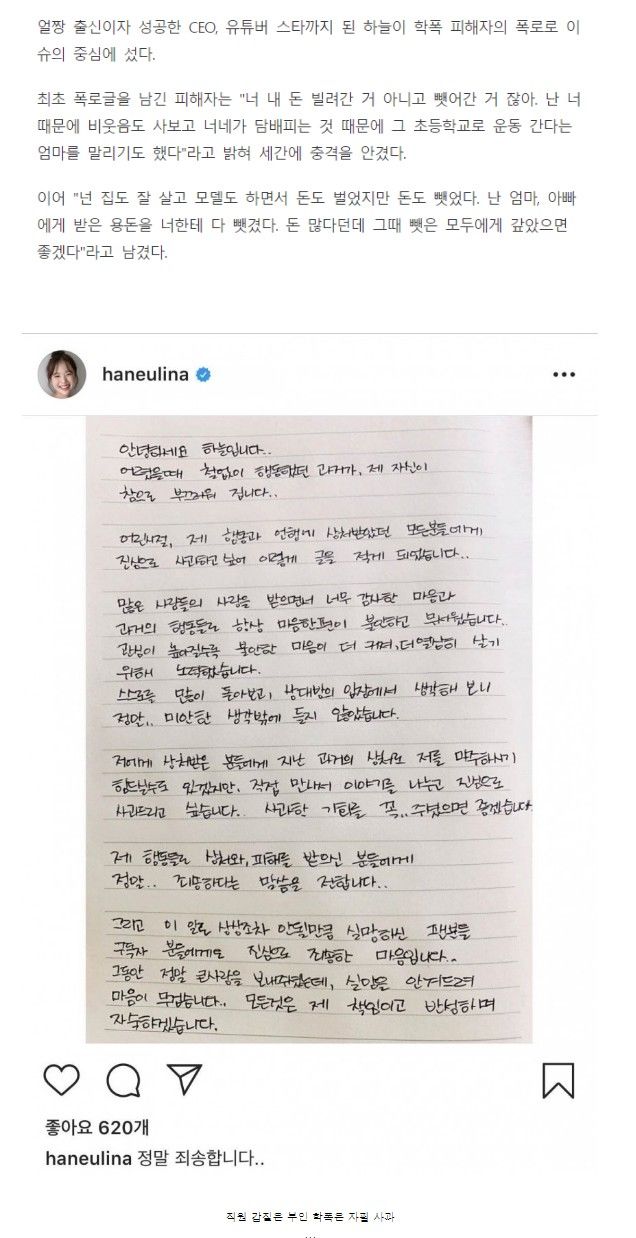 얼짱 출신이자 성공한 CEO, 유튜버 스타까지 된 하늘이 학폭 피해자의 폭로로 이
슈의 중심에 섰다.
최초 폭로글을 남긴 피해자는 "너 내 돈 빌려간 거 아니고 뺏어간 거 잖아. 난 너
때문에 비웃음도 사보고 너네가 담배피는 것 때문에 그 초등학교로 운동 간다는
엄마를 말리기도 했다"라고 밝혀 세간에 충격을 안겼다.
이어 "넌 집도 잘 살고 모델도 하면서 돈도 벌었지만 돈도 뺏었다. 난 엄마, 아빠
에게 받은 용돈을 너한테 다 뺏겼다. 돈 많다던데 그때 뺏은 모두에게 갚았으면
좋겠다"라고 남겼다.
haneulina
안녕하세요 하늘입니다..
어렸을때 철없이 행동했던 과거가, 제 자신이
참으로 부끄러워 집니다..
어린시절, 제 행동과 언행에 상처받았던 모든분들에게
진심으로 사과하고 싶어 이렇게 글을 적게 되었습니다..
많은 사람들의 사랑을 받으면서 너무 감사한 마음과
과거의 행동들로 항상 마음한편이 불안하고 무서웠습니다..
관심이 높아질수록 불안한 마음이 더 커져, 더열심히 살기
위해 노력했습니다.
스스로를 많이 돌아보고, 상대방의 입장에서 생각해 보니
정말.. 미안한 생각밖에 들지 않았습니다.
저에게 상처받은 분들에게 지난 과거의 상처로 저를 마주하시기
힘드실수도 있겠지만, 직접 만나서 이야기를 나누고 진심으로
사과드리고 싶습니다.. 사과할 기회를 꼭.. 주셨으면 좋겠습니다
제 행동들로 상처와, 피해를 받으신 분들에게
정말.. 죄송하다는 말씀을 전합니다..
그리고 이 일로 상상조차 안될만큼 실망하신 팬분들
구독자 분들에게도 진심으로 죄송한 마음입니다..
그동안 정말 큰사랑을 보내주셨는데, 실망을 안겨드려
마음이 무겁습니다.. 모든것은 제 책임이고 반성하며
자숙하겠습니다.
좋아요 620개
haneulina 정말 죄송합니다..
직원 갑질은 부인 학폭은 자필 사과
...